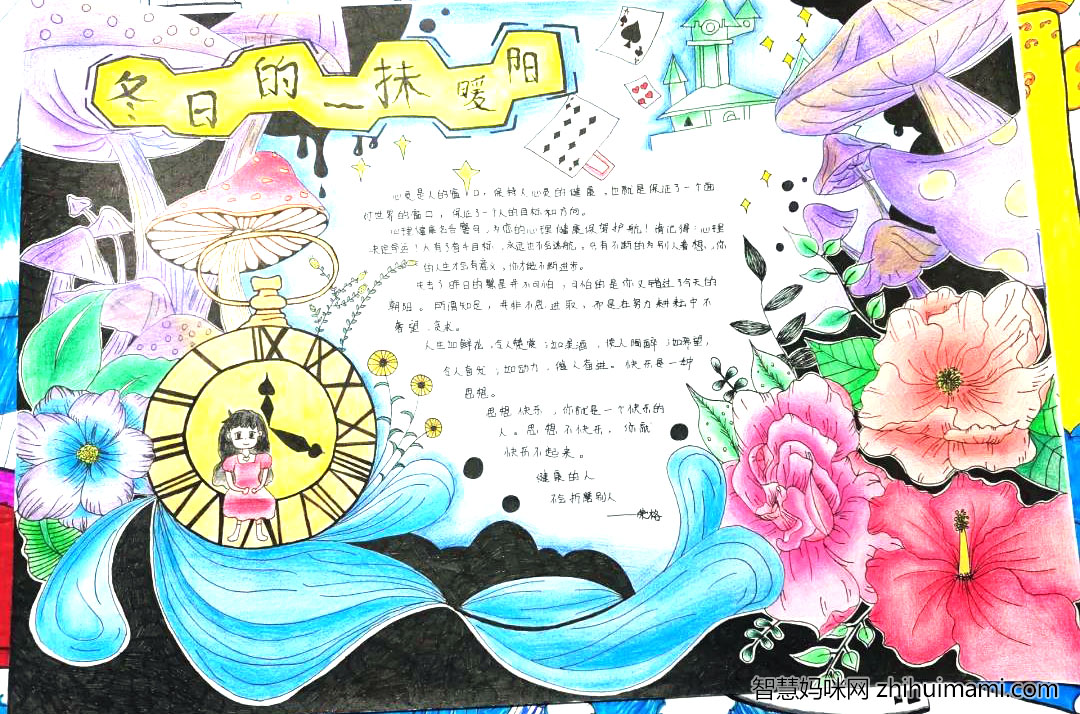 冬日的一抹暖阳
心灵是人的窗口，保持人心灵的健康，也就是保证了一个面
对世界的窗口，保证了一个人的目标和方向。
心理健康名言警句，为你的心理健康保驾护航！请记得：心理
决定命运！人有了奋斗目标，永远也不会迷航。只有不断的为别人着想，你
的人生才会有意义，你才能不断进步。
失去了昨日的繁星并不可怕，可怕的是你又错过了今天的
朝阳。所谓知足，并非不思进取，而是在努力耕耘中不
希望
人生如鲜花，令人赞赏；如美酒，使人陶醉；如希望，
令人奋发；如动力，催人奋进。快乐是一种
思想。
思想快乐，你就是一个快乐的
人。思想不快乐，你就
快乐不起来。
健康的人
不会折磨别人
——荣格
智慧妈咪网 zhihuimami.com